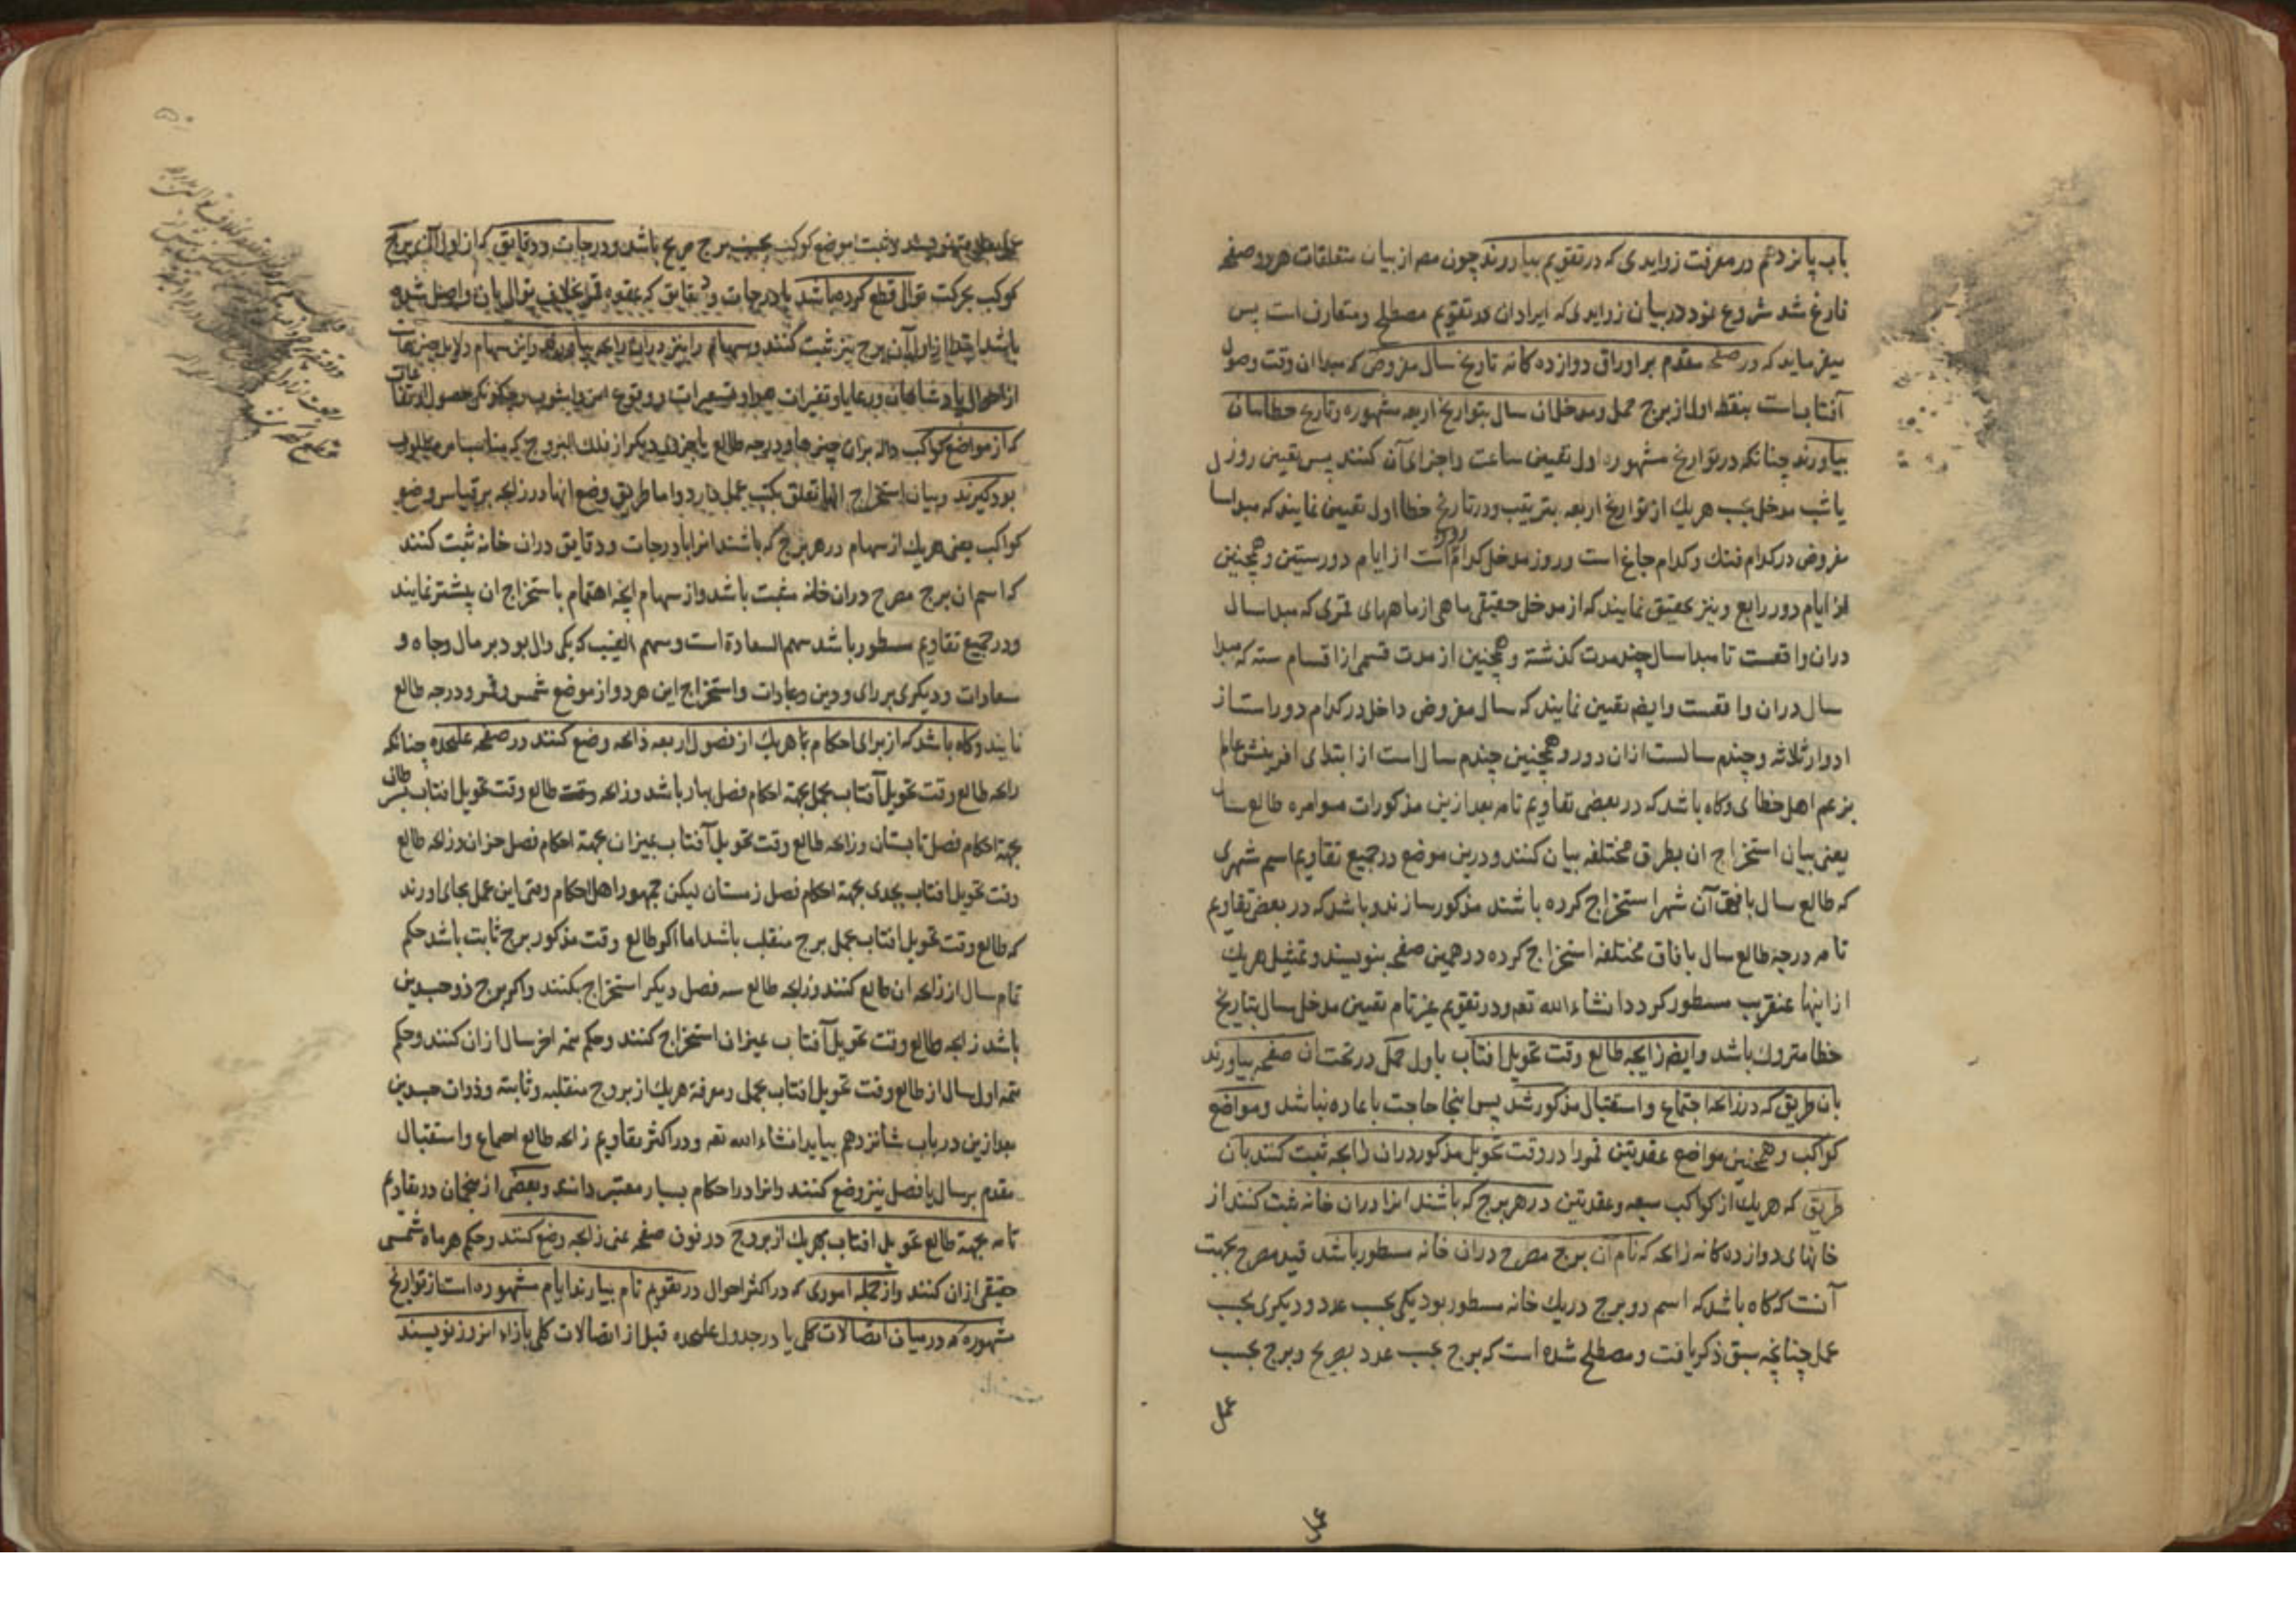 باب پانزدهم در معرفت زوایدی که در تقویم بیاورند چون مصـ از بیان متعلقات هر دو صفحه
فارغ شد شروع نمود در بیان زوایدی که ایراد ان در تقویم مصطلح و متعارف است پس
میفرماید که در صفحه مقدم بر اوراق دوازده کانه تاریخ سال مفروض که مبدا ان وقت وصول
آفتاب است بنقطه اول از برج حمل و مدخل ان سال بتواریخ اربعه مشهوره و تاریخ خطاییان
بیاورند چنانکه در تواریخ مشهوره اول تعیین ساعت و اجزای آن کنند پس تعیین روز
یا شب مدخل بحسب هریک از تواریخ اربعه بترتیب و در تاریخ خطا اول تعیین نمایند که مبدا سال
مفروض در کدام فنک و کدام جاغ است و روز مدخل کدام روز است از ایام دور ستین و همچنین
از ایام دور رابع و نیز تحقیق نمایند که از مدخل حقیقی ماهی از ماههای قمری که مبدا سال
دران واقعست تا مبدا سال چند مدت گذشته و همچنین از مدت قسمی از اقسام سته که مبدا
سال دران واقعست و ایضـ تعیین نمایند که سال مفروض داخل در کدام دور است از
ادوار ثلاثه و چندم سالست ازان دور و همچنین چندم سال است از ابتدای افرینش عالم
بزعم اهل خطای و کاه باشد که در بعضی تقاویم تامه بعد ازین مذکورات موامره طالع سال
یعنی بیان استخراج ان بطرق مختلفه بیان کنند و درین موضع در جمیع تقاویم اسم شهری
که طالع سال بافق آن شهر استخراج کرده باشند مذکور سازند و باشد که در بعض تقاویم
تامه درجه طالع سال بافاق مختلفه استخراج کرده در همین صفحه بنویسند و تمثیل هریک
ازاینها عنقریب مسطور کردد انشاء الله تعـ و در تقویم غیر تام تعیین مدخل سال بتاریخ
خطا متروک باشد و ایضـ زایجه طالع وقت تحویل افتاب باول حمل در تحت ان صفحه بیاورند
بان طریق که در زایجه اجتماع و استقبال مذکور شد پس اینجا حاجت باعاده نباشد و مواضع
کواکب و همچنین مواضع عقدتین قمر را در وقت تحویل مذکور دران زایجه ثبت کنند بان
طریق که هریک از کواکب سبعه و عقدتین در هر برج که باشند انرا دران خانه ثبت کنند از
خانهای دوازده کانه زایجه که نام آن برج مصرح دران خانه مسطور باشد قید مصرح بجهت
آنست که کاه باشد که اسم دو برج دریک خانه مسطور بود یکی بحسب عدد و دیکری بحسب
عمل چنانچه سبق ذکر یافت و مصطلح شده است که برج بحسب عدد بصریح و برج بحسب
عمل
ثبت موضع کوکب بحسب برج صریح باشد و درجات و دقایق که از اول آن برج
کوکب بحرکت توالی قطع کرده باشد یا درجات و دقایق که عقده قمر بخلاف توالی بان واصل شده
باشد ابتدا از اول آن برج نیز ثبت کنند و سهام را نیز دران زایجه بیاورند و این سهام دلایل چیزهاست
از احوال پادشاهان و رعایا و تغیرات هوا و تسعیرات و وقوع امن و اشوب و چکونکی حصول ارتفاعات
که از مواضع کواکب داله بران چیزها و درجه طالع یا جزوی دیکر از فلک البروج که مناسب امر مطلوب
بود کیرند و بیان استخراج انها تعلق بکتب عمل دارد و اما طریق وضع انها در زایجه بر قیاس وضع
کواکب یعنی هریک از سهام در هر برج که باشند انرا با درجات و دقایق دران خانه ثبت کنند
که اسم ان برج مصرح دران خانه مثبت باشد و از سهام انچه اهتمام باستخراج ان بیشتر نمایند
و در جمیع تقاویم مسطور باشد سهم السعادة است و سهم الغیب که یکی دال بود بر مال و جاه و
سعادات و دیکری بر رای و دین و عبادات و استخراج این هر دو از موضع شمس و قمر و درجه طالع
نمایند و کاه باشد که از برای احکام هریک از فصول اربعه زایجه وضع کنند در صفحه علیحده چنانکه
زایجه طالع وقت تحویل آفتاب بحمل بجهة احکام فصل بهار باشد و زایجه طالع وقت تحویل افتاب بسرطان
بجهة احکام فصل تابستان و زایجه طالع وقت تحویل آفتاب بمیزان بجهة احکام فصل خزان و زایجه طالع
وقت تحویل افتاب بجدی بجهة احکام فصل زمستان لیکن جمهور اهل احکام وقتی این عمل بجای اورند
که طالع وقت تحویل افتاب بحمل برج منقلب باشد اما اکر طالع وقت مذکور برج ثابت باشد حکم
تمام سال از زایجه ان طالع کنند و زایجه طالع سه فصل دیکر استخراج نکنند و اکر برج ذو جسدین
باشد زایجه طالع وقت تحویل آفتاب بمیزان استخراج کنند و حکم نیمه اخر سال ازان کنند و حکم
نیمه اول سال از طالع وقت تحویل افتاب بحمل و معرفة هریک از بروج منقلبه و ثابته و ذوات جسدین
بعد ازین در باب شانزدهم بیاید انشاء الله تعـ و در اکثر تقاویم زایجه طالع اجتماع و استقبال
مقدم بر سال یا فصل نیز وضع کنند و انرا در احکام بسیار معتبر دانند و بعضی از منجمان در تقاویم
تامه بجهة طالع تحویل افتاب بهریک از بروج در فوق صفحه یمنی زایجه وضع کنند و حکم هر ماه شمسی
حقیقی ازان کنند و از جمله اموری که در اکثر احوال در تقویم تام بیارند ایام مشهوره است از تواریخ
مشهوره که در میان اتصالات کلی یا در جدول علیحده قبل از اتصالات کلی بازاء انروز نویسند